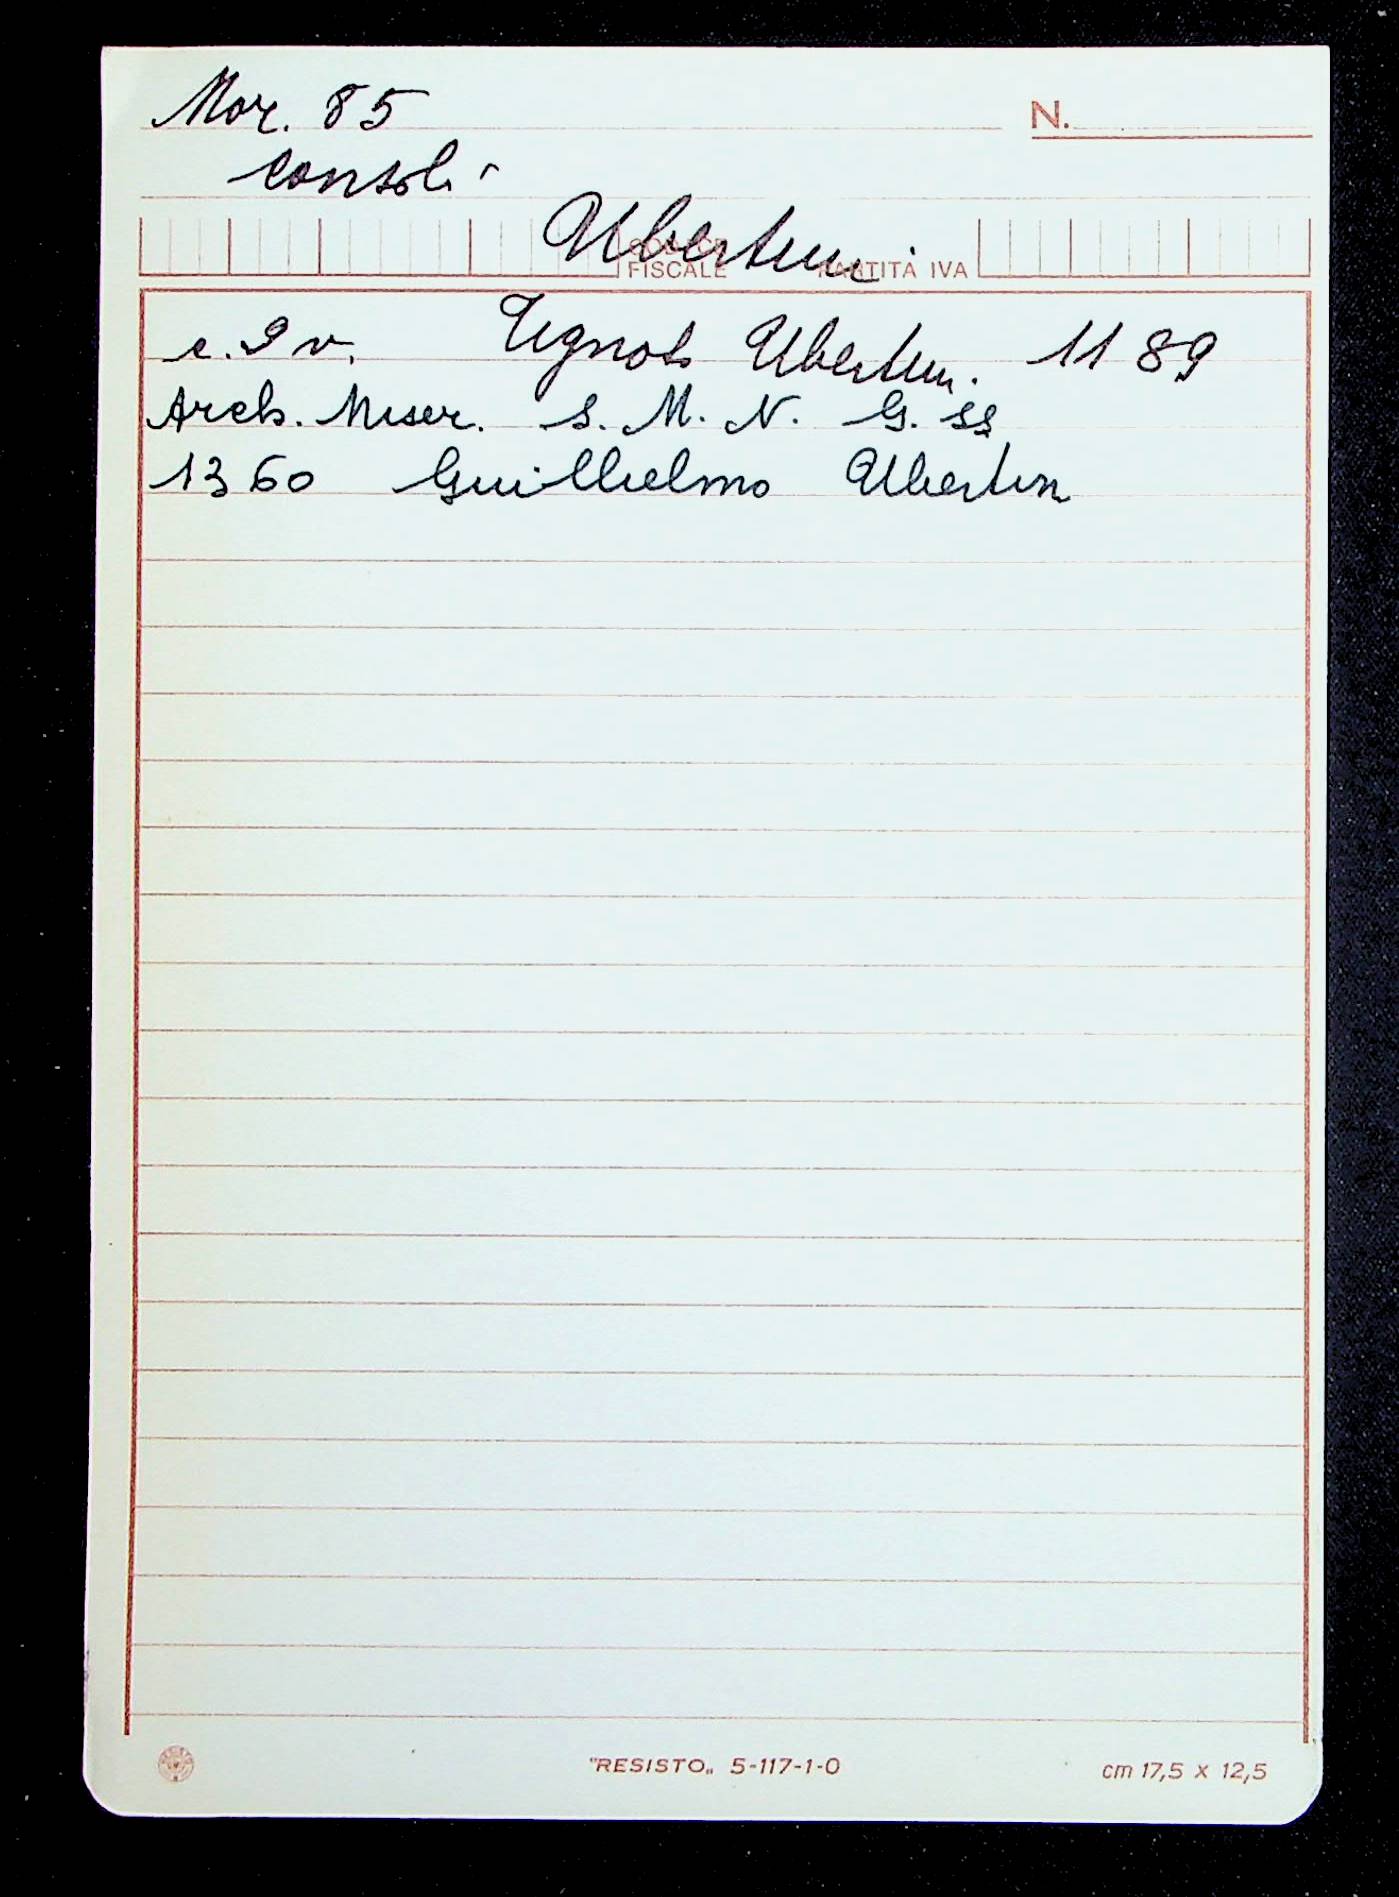 Mor. 85
N.
Consoli
Ubertini
CODICE FISCALE PARTITA IVA
c. 9 v. Ugnoto Ubertin. 1189
Arch. Miser. S. M. N. G. 58
1360 Guilhelmo Ubertin
"RESISTO„ 5-117-1-0 cm 17,5 x 12,5